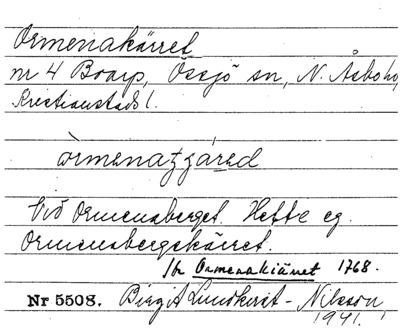 Ormenakärret
nr 4 Boarp, Össjö sn, N. Åsbo hd,
Kristianstads l.
òrmenatʒáred
Vid Ormensberget. Hette eg.
Ormensbergskärret.
Jbr Ormenakiärret 1768.
Nr 5508. Birgit Lundkvist - Nilsson,
1941.